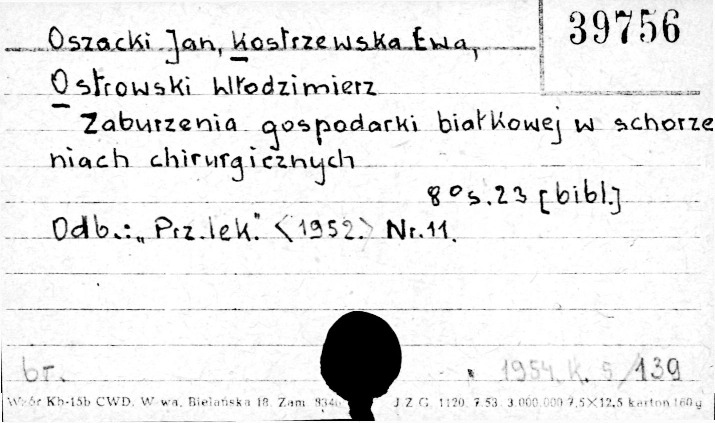 39756
Oszacki Jan, Kostrzewska Ewa,
Ostrowski Włodzimierz
Zaburzenia gospodarki białkowej w schorze
niach chirurgicznych
8° s. 23 [bibl.]
Odb.: „Prz. lek." <1952.> Nr. 11.
br. 1954. K. 5/139
Wzór Kb-15b CWD. W-wa, Bielańska 18. Zam. 8346 J.Z.G. 1120. 7.53. 3.000.000 7,5×12,5 karton 160g